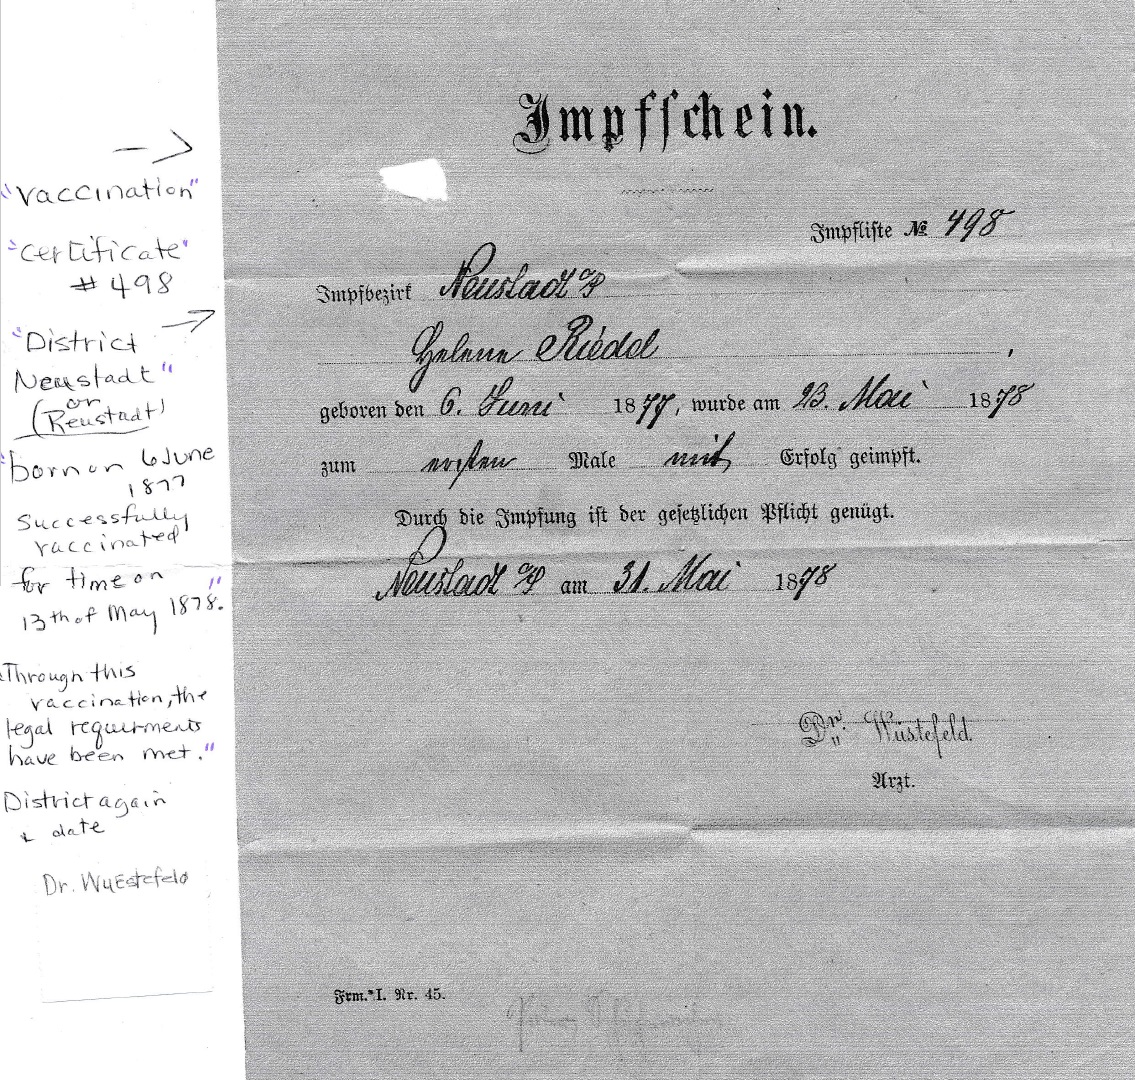 "vaccination"
"certificate"
# 498
"District
Neustadt"
or
(Reustadt)
"born on 6 June
1877
successfully
vaccinated
for time on
13th of May 1878."
"Through this
vaccination, the
legal requirments
have been met."
District again
+ date
Dr. Wuestefeld
Impfschein.
Impfliste № 498
Impfbezirk Neustadt
Helene Riedel,
geboren den 6. Juni 1877, wurde am 23. Mai 1878
zum ersten Male mit Erfolg geimpft.
Durch die Impfung ist der gesetzlichen Pflicht genügt.
Neustadt am 31. Mai 1878
Dr. Wüstefeld.
Arzt.
Frm. I. Nr. 45.